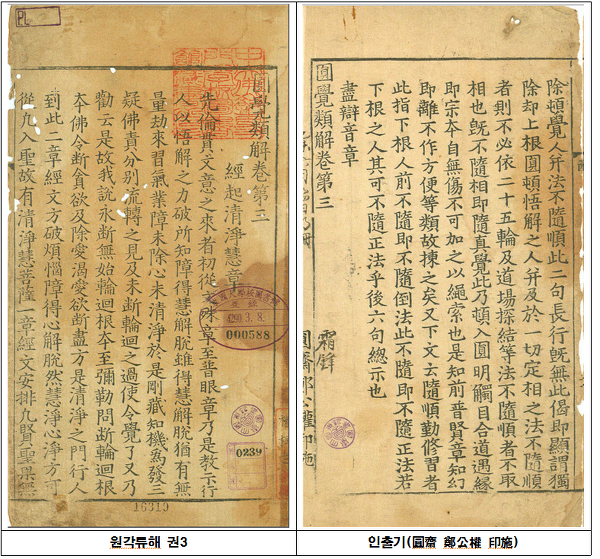 PL
圓覺類解卷第三
經起清淨慧章
先倫貫文意之來者初從文殊章至普眼章乃是敎示行
人以悟解之力破所知障得慧解脫雖得慧解脫猶有無
量劫來習氣業障未除心未清淨於是剛藏知機為發三
疑佛責分別流轉之見及未断輪迴之過使令覺了又乃
勸云是故我說永断無始輪迴根夲至彌勒問断輪迴根
夲佛令断貪欲及除愛渴愛欲断盡方是清淨之門行人
到此二章經文方破煩惱障得心解脫然慧淨心淨方可
從凡入聖故有清淨慧菩薩一章經文安排凡賢聖果
4200. 3. 8.
000588
0239
16319
除頓覺人幷法不隨順此二句長行旣無此偈即顯謂獨
除却上根圓頓悟解之人幷及於一切定相之法不隨順
者則不必依二十五輪及道場探結等法不隨順者不取
相也旣不隨相即隨真覺此乃頓入圓明觸目合道遇緣
即宗夲自無傷不可加之以繩索也是知前普賢章知幻
即離不作方便等類故揀之矣又下文云隨順勤修習者
此指下根人前不隨即不隨倒法此不隨即不隨正法若
下根之人其可不隨正法乎後六句總示也
盡辯音章
圓覺類解卷第三
圓齋鄭公權印施
원각류해 권3
인출기(圓齋 鄭公權 印施)